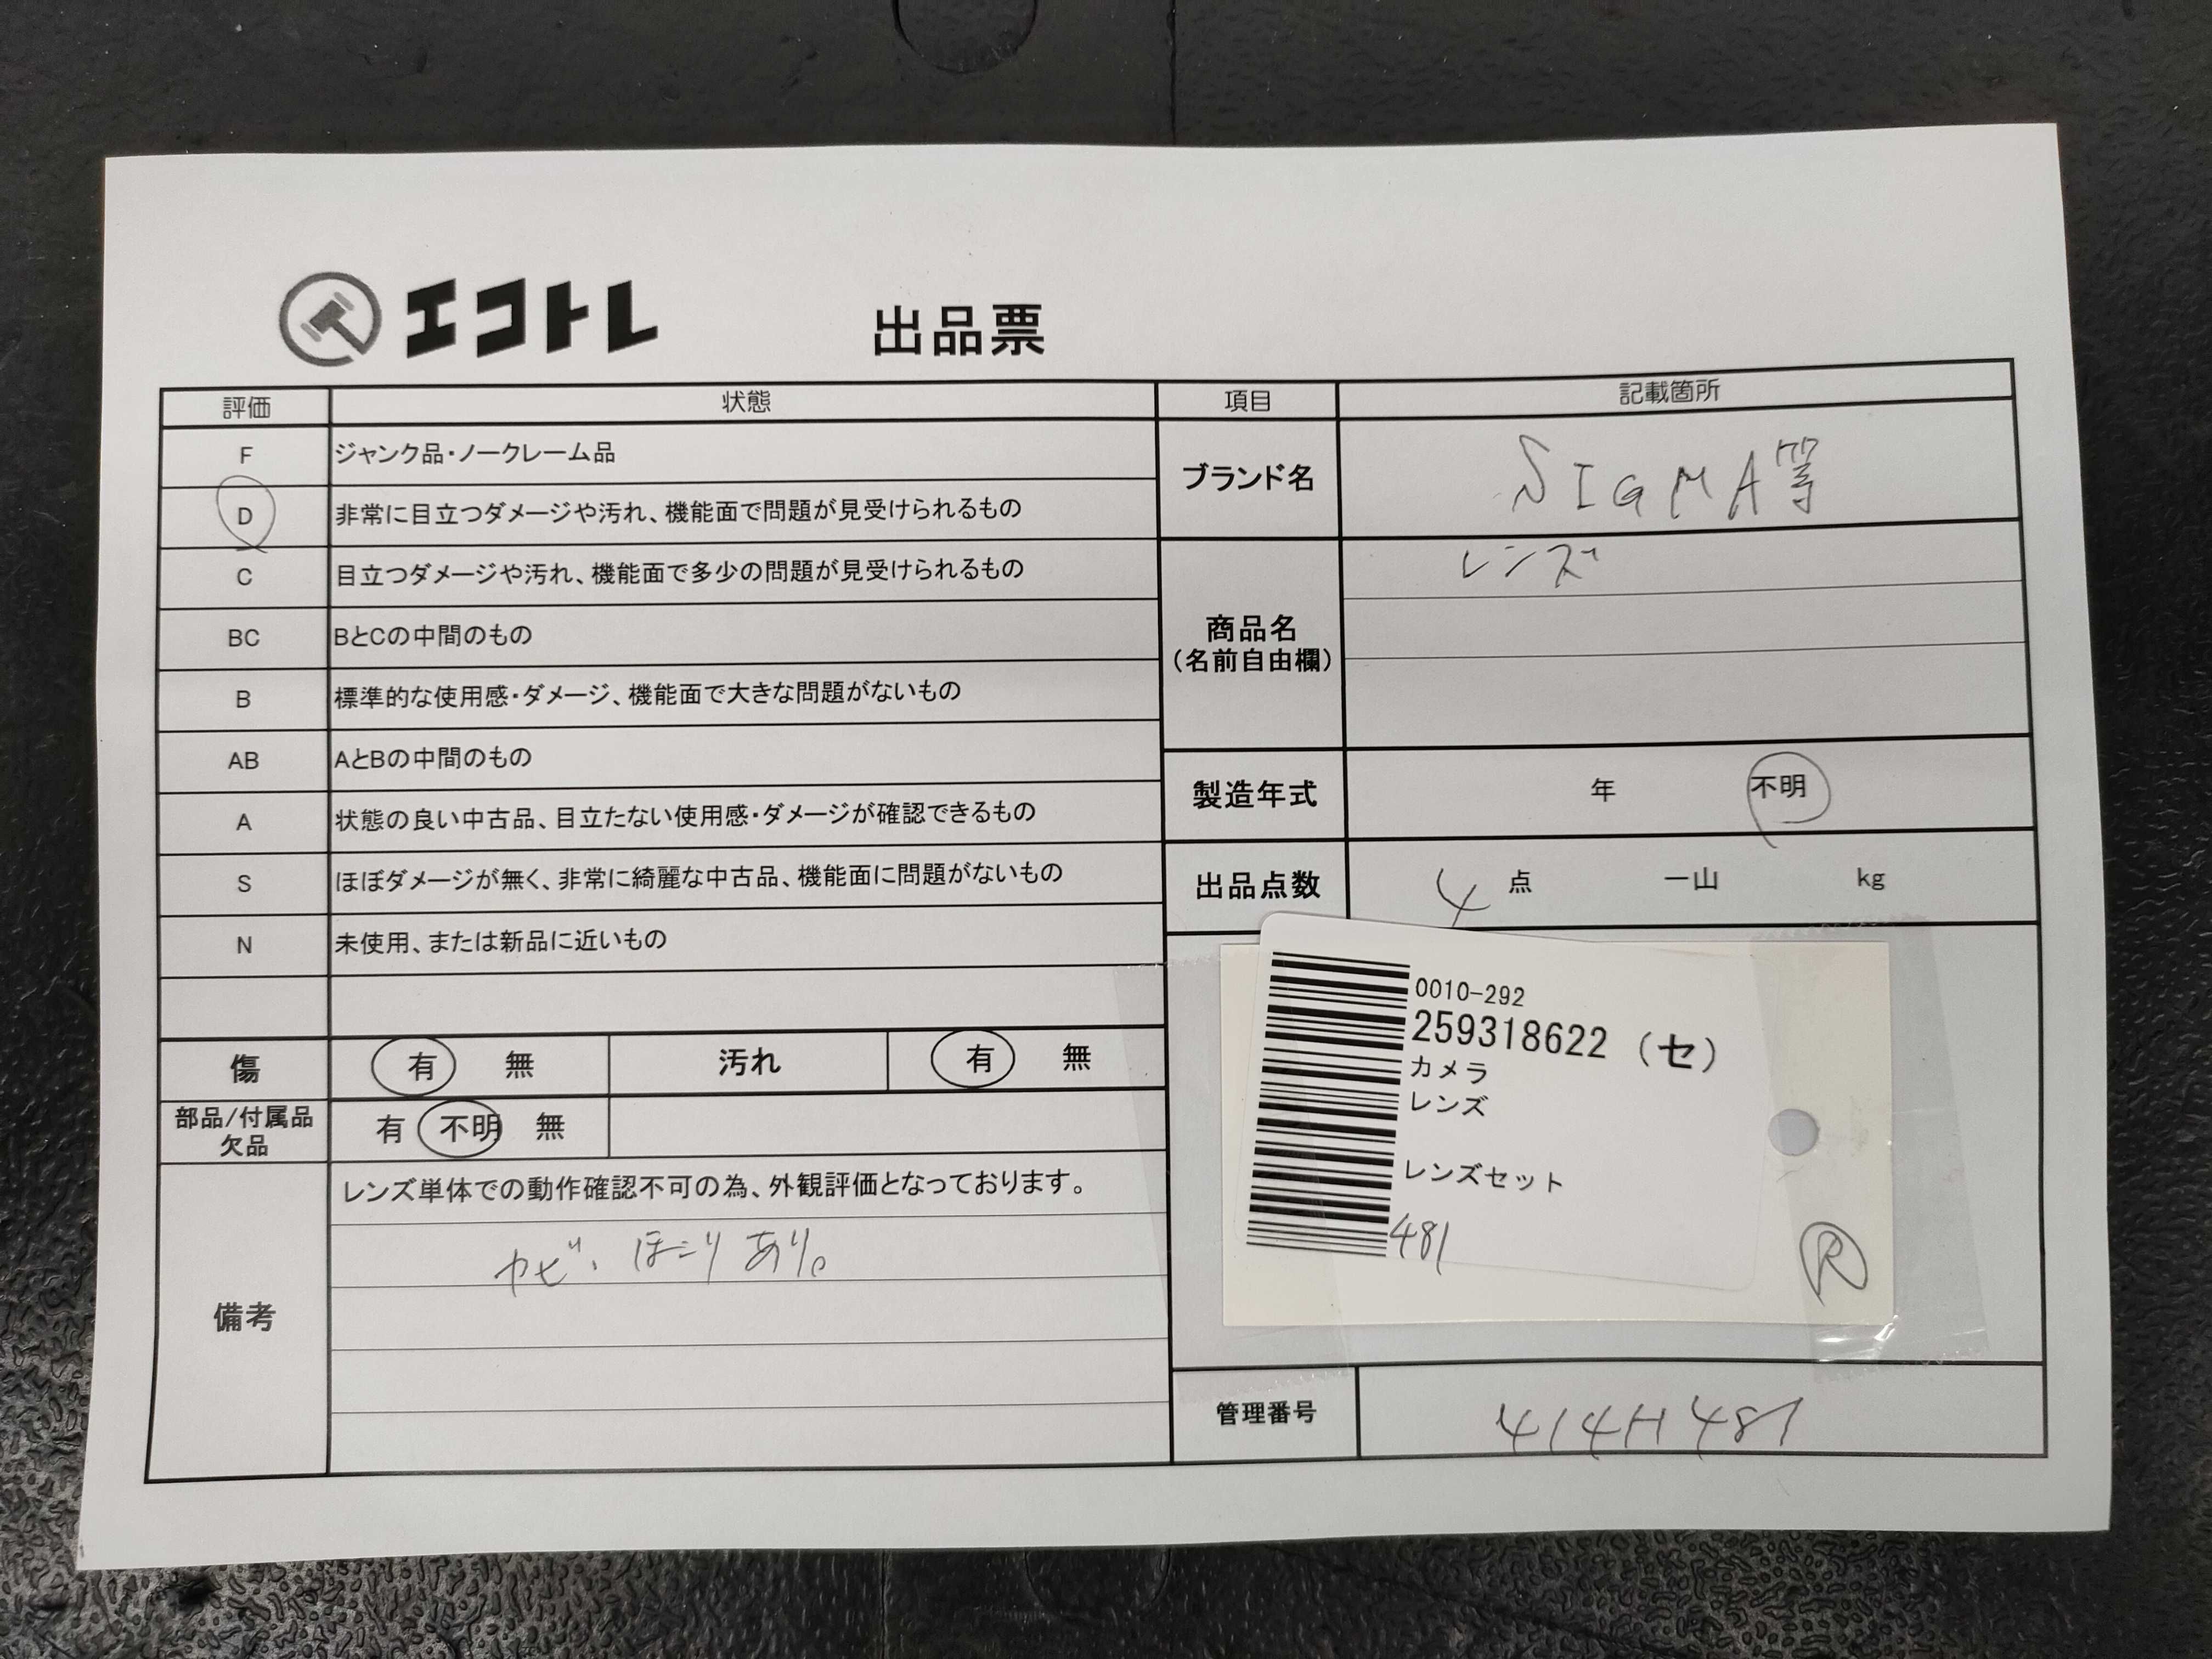 エコトレ 出品票
評価 状態
F ジャンク品・ノークレーム品
D 非常に目立つダメージや汚れ、機能面で問題が見受けられるもの
C 目立つダメージや汚れ、機能面で多少の問題が見受けられるもの
BC BとCの中間のもの
B 標準的な使用感・ダメージ、機能面で大きな問題がないもの
AB AとBの中間のもの
A 状態の良い中古品、目立たない使用感・ダメージが確認できるもの
S ほぼダメージが無く、非常に綺麗な中古品、機能面に問題がないもの
N 未使用、または新品に近いもの
傷 有 無 汚れ 有 無
部品/付属品
欠品 有 不明 無
備考
レンズ単体での動作確認不可の為、外観評価となっております。
カビ、ほこりあり。
項目 記載箇所
ブランド名 SIGMA等
商品名
(名前自由欄)
レンズ
製造年式 年 不明
出品点数 4 点 一山 kg
0010-292
259318622 (セ)
カメラ
レンズ
レンズセット
481
R
管理番号 414H481